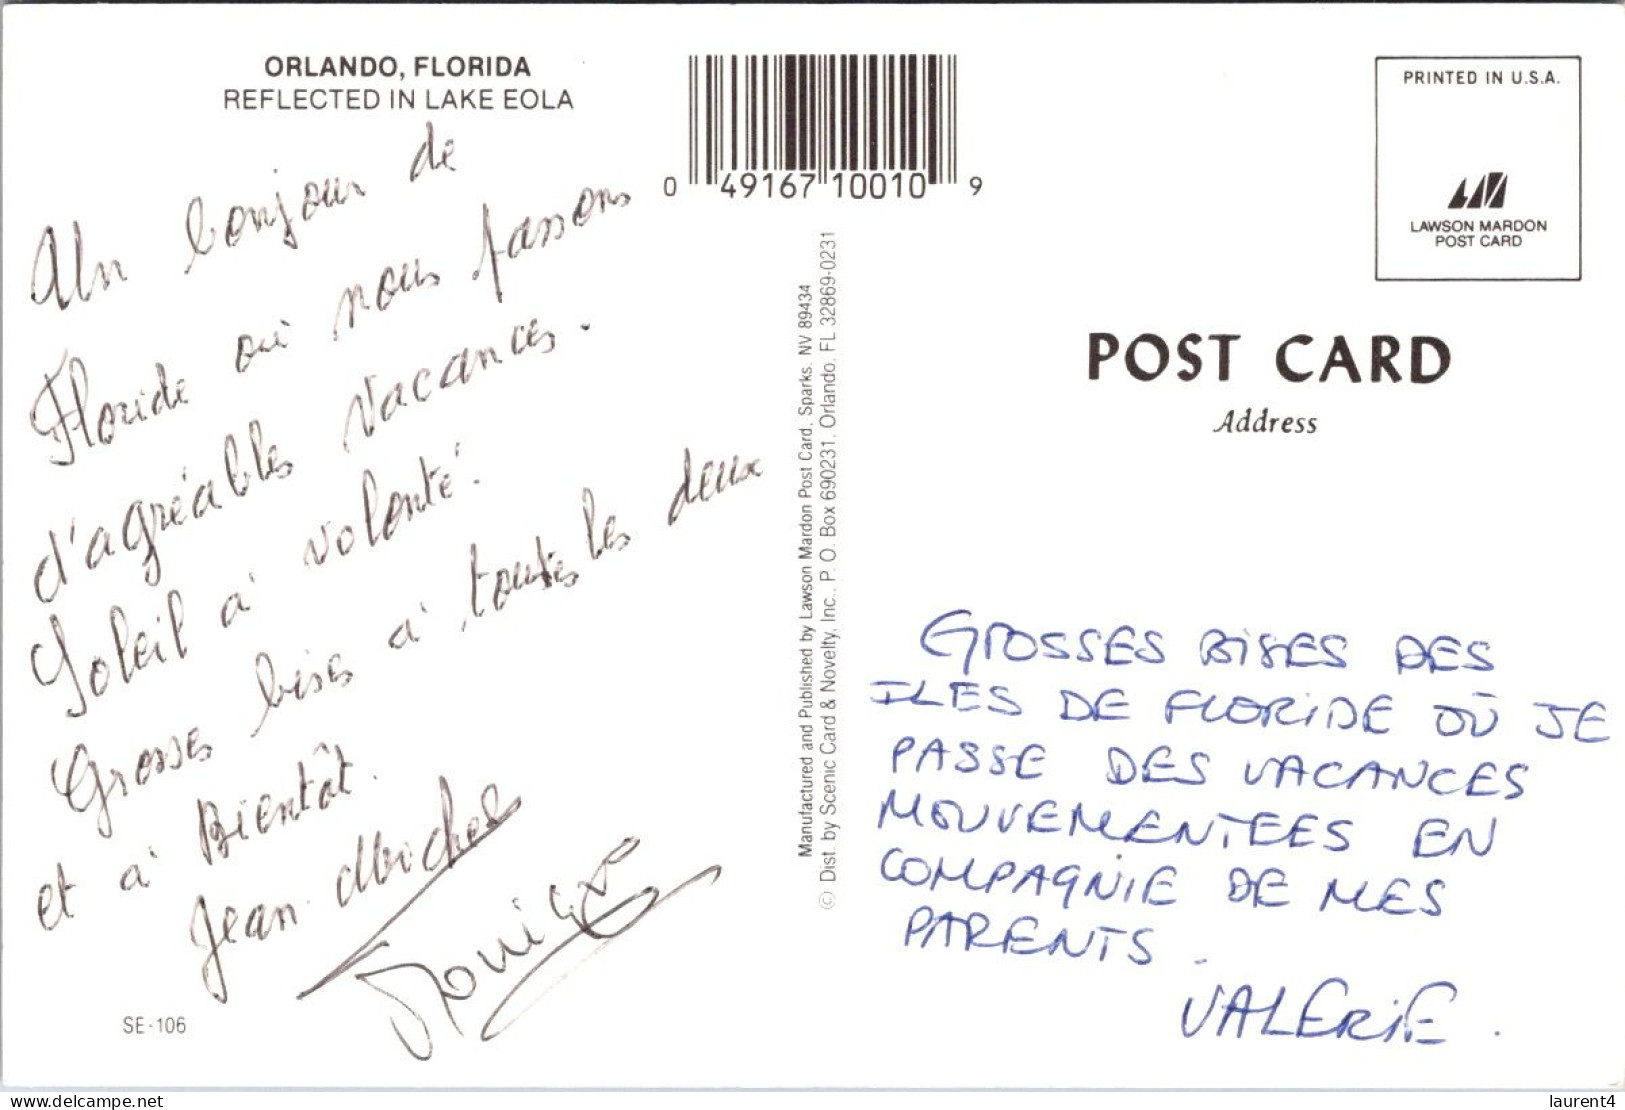 ORLANDO, FLORIDA
REFLECTED IN LAKE EOLA
Un bonjour de
Floride où nous passons
d'agréables vacances.
Soleil à volonté.
Grosses bises à toutes les deux
et à Bientôt.
Jean-Michel
Monique
SE-106
0 49167 10010 9
Manufactured and Published by Lawson Mardon Post Card, Sparks, NV 89434
© Dist. by Scenic Card & Novelty, Inc., P. O. Box 690231, Orlando, FL 32869-0231
PRINTED IN U.S.A.
LAWSON MARDON
POST CARD
POST CARD
Address
GROSSES BISES DES
ILES DE FLORIDE OÙ JE
PASSE DES VACANCES
MOUVEMENTEES EN
COMPAGNIE DE MES
PARENTS.
VALERIE.
delcampe.net
laurent4